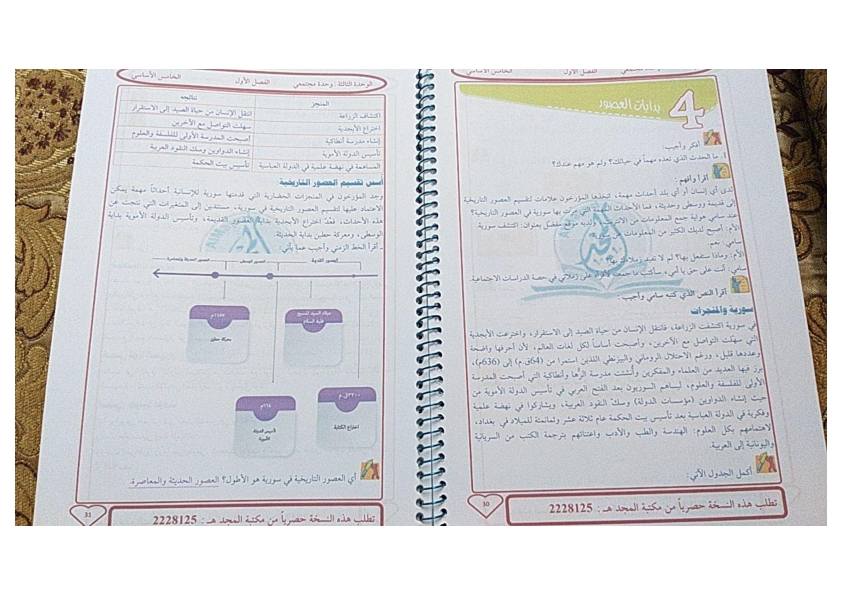 الوحدة الثالثة: وحدة مجتمعي الفصل الأول الخامس الأساسي
4 بدايات العصور
أفكر وأجيب:
1. ما الحدث الذي تعده مهماً في حياتك؟ ولم هو مهم عندك؟
أقرأ وأفهم:
لدى أي إنسان أو أي بلد أحداث مهمة، اتخذها المؤرخون علامات لتقسيم العصور التاريخية
إلى قديمة ووسطى وحديثة، فما الأحداث بها سورية في العصور التاريخية؟
عند سامي هواية جمع المعلومات من موقع مفضل بعنوان: اكتشف سورية.
الأم: أصبح لديك الكثير من المعلومات عن سورية؟
سامي: نعم.
الأم: وماذا ستفعل بها؟ لم لا تفيد زملاءك بها؟
سامي: أنت على حق يا أمي، سأكتب ما جمعت لأقرأه على زملائي في حصة الدراسات الاجتماعية.
أقرأ النص الذي كتبه سامي وأجيب:
سورية والمنجزات
في سورية اكتشفت الزراعة، فانتقل الإنسان من حياة الصيد إلى الاستقرار، واخترعت الأبجدية
التي سهلت التواصل مع الآخرين، وأصبحت أساساً لكل لغات العالم، لأن أحرفها واضحة
وعددها قليل، ورغم الاحتلال الروماني والبيزنطي اللذين استمرا من (64ق.م) إلى (636م)،
برز فيها العديد من العلماء والمفكرين وأنشئت مدرسة الرها وأنطاكية التي أصبحت المدرسة
الأولى للفلسفة والعلوم، ليساهم السوريون بعد الفتح العربي في تأسيس الدولة الأموية من
حيث إنشاء الدواوين (مؤسسات الدولة) وسك النقود العربية، ويشاركوا في نهضة علمية
وفكرية في الدولة العباسية بعد تأسيس بيت الحكمة عام ثلاثة عشر وثمانمئة للميلاد في بغداد،
لاهتمامهم بكل العلوم: الهندسة والطب والأدب واعتنائهم بترجمة الكتب من السريانية
واليونانية إلى العربية.
أكمل الجدول الآتي:
30
تطلب هذه النسخة حصرياً من مكتبة المجد هـ : 2228125
الوحدة الثالثة: وحدة مجتمعي الفصل الأول الخامس الأساسي
المنجز نتائجه
اكتشاف الزراعة انتقل الإنسان من حياة الصيد إلى الاستقرار
اختراع الأبجدية سهلت التواصل مع الآخرين
إنشاء مدرسة أنطاكية أصبحت المدرسة الأولى للفلسفة والعلوم
تأسيس الدولة الأموية إنشاء الدواوين وسك النقود العربية
المساهمة في نهضة علمية في الدولة العباسية تأسيس بيت الحكمة
أسس تقسيم العصور التاريخية
وجد المؤرخون في المنجزات الحضارية التي قدمتها سورية للإنسانية أحداثاً مهمة يمكن
الاعتماد عليها لتقسيم العصور التاريخية في سورية، مستندين إلى المتغيرات التي نتجت عن
هذه الأحداث، فعُدّ اختراع الأبجدية بداية العصور القديمة، وتأسيس الدولة الأموية بداية
الوسطى، ومعركة حطين بداية الحديثة.
ـ أقرأ الخط الزمني وأجيب عما يأتي:
العصور القديمة العصور الوسطى العصور الحديثة والمعاصرة
ميلاد السيد المسيح
عليه السلام
معركة حطين
٣٢٠٠ق.م
اختراع الكتابة
تأسيس الدولة
الأموية
أي العصور التاريخية في سورية هو الأطول؟ العصور الحديثة والمعاصرة.
31
تطلب هذه النسخة حصرياً من مكتبة المجد هـ : 2228125